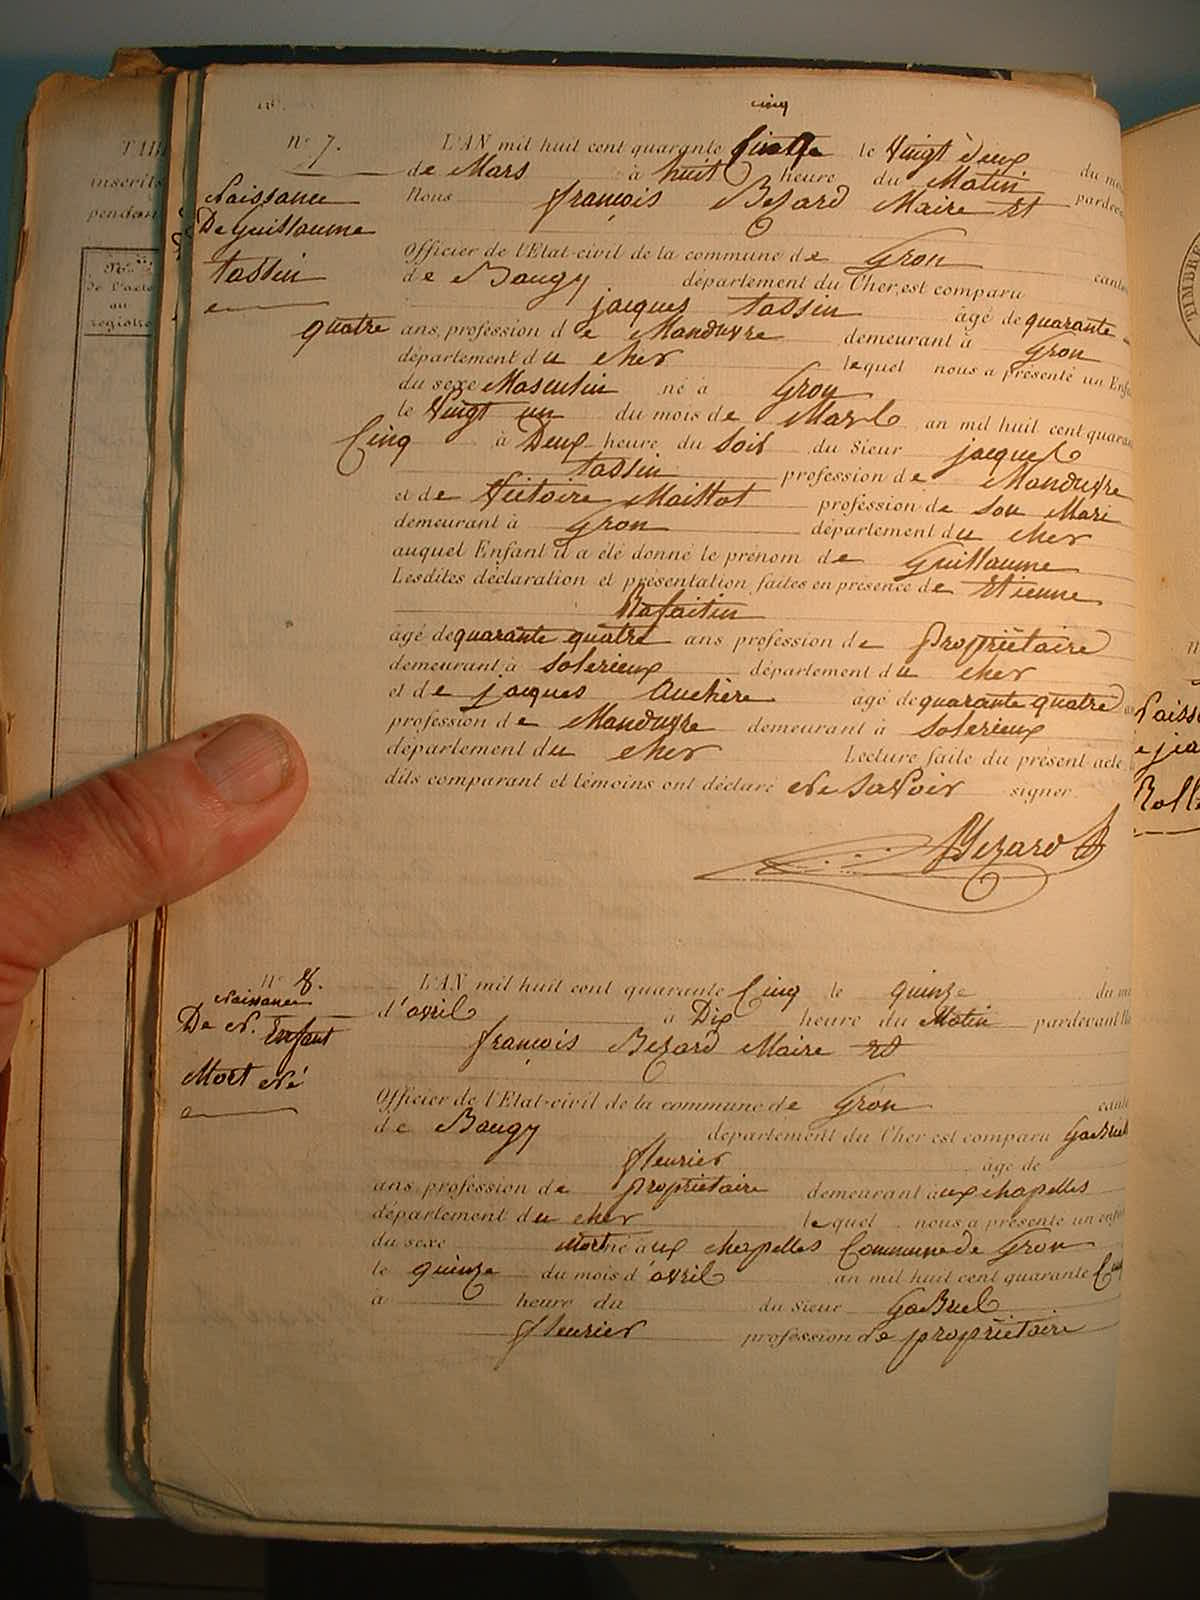 TAB
inscrits
pendan
Nos
de l'acte
au
registre
cinq
n° 7.
Naissance
De Guillaume
tassin
L'AN mil huit cent quarante le Vingt deux du mo
de Mars à huit heure du Matin pardev
Nous françois Bezard Maire et
Officier de l'Etat-civil de la commune de Gron cant
de Baugy département du Cher, est comparu
jacques tassin âgé de quarante
quatre ans, profession de Manœuvre demeurant à Gron
département du cher lequel nous a présenté un Enfa
du sexe Masculin né à Gron
le Vingt un du mois de Mars an mil huit cent quaran
Cinq à Deux heure du soir du sieur jacques
tassin profession de Manœuvre
et de Victoire Maillot profession de son Mari
demeurant à Gron département du cher
auquel Enfant il a été donné le prénom de Guillaume
Lesdites déclaration et présentation faites en présence de Etienne
Rafaitin
âgé de quarante quatre ans profession de propriétaire
demeurant à solerieux département du cher
et de jacques Auchère âgé de quarante quatre
profession de Manœuvre demeurant à solerieux
département du cher Lecture faite du présent acte
dits comparant et témoins ont déclaré Ne savoir signer.
Bezard
n° 8.
Naissance
De N. Enfant
Mort Né
L'AN mil huit cent quarante Cinq le quinze du m
d'avril à Dix heure du Matin pardevant N
françois Bezard Maire et
Officier de l'Etat-civil de la commune de Gron cant
de Baugy département du Cher est comparu Gabriel
fleurier âgé de
ans profession de propriétaire demeurant aux chapelles
département du cher lequel nous a présenté un enfa
du sexe Mort né aux chapelles Commune de Gron
le quinze du mois d'avril an mil huit cent quarante Cinq
à heure du du sieur Gabriel
fleurier profession de propriétaire
TIMBRE
Naiss
e jea
Roll